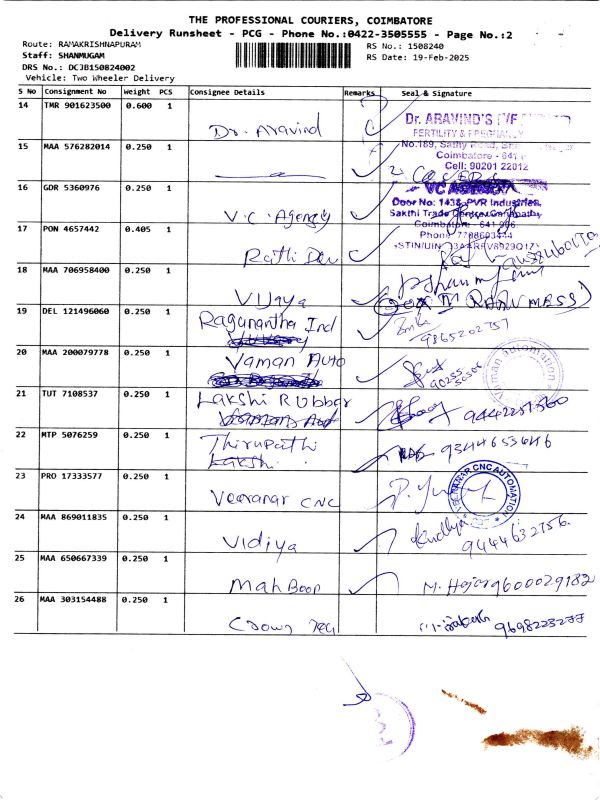 THE PROFESSIONAL COURIERS, COIMBATORE
Delivery Runsheet - PCG - Phone No.:0422-3505555 - Page No.:2
Route: RAMAKRISHNAPURAM
RS No.: 1508240
Staff: SHANMUGAM
RS Date: 19-Feb-2025
DRS No.: DCJB150824002
Vehicle: Two Wheeler Delivery
S No Consignment No Weight PCS Consignee Details Remarks Seal & Signature
14 TMR 901623500 0.600 1
Dr. Aravind
Dr. ARAVIND'S IVF
FERTILITY & PREGNANCY
No.189, Sathy Road,
Coimbatore - 641
Cell: 90201 22012
15 MAA 576282014 0.250 1
16 GDR 5360976 0.250 1
V.C. Agency
VC AGENCY
Door No: 1438, PVR Industries,
Sakthi Trade
Coimbatore - 641 006.
Phone: 7708603444
17 PON 4657442 0.405 1
Rathi Dev
18 MAA 706958400 0.250 1
Vijaya
19 DEL 121496060 0.250 1
Ragunantha Ind
9865202757
20 MAA 200079778 0.250 1
Vaman Auto
Vaman Automation
21 TUT 7108537 0.250 1
Lakshi Rubber
22 MTP 5076259 0.250 1
Thirupathi
Lakshi
9344653646
23 PRO 17333577 0.250 1
Veeranar CNC
VEERANAR CNC AUTOMATION
24 MAA 869011835 0.250 1
Vidiya
9444632756
25 MAA 650667339 0.250 1
Mah Boop
M. Hajara 9600029182
26 MAA 303154488 0.250 1
Crown Teg
9698223277